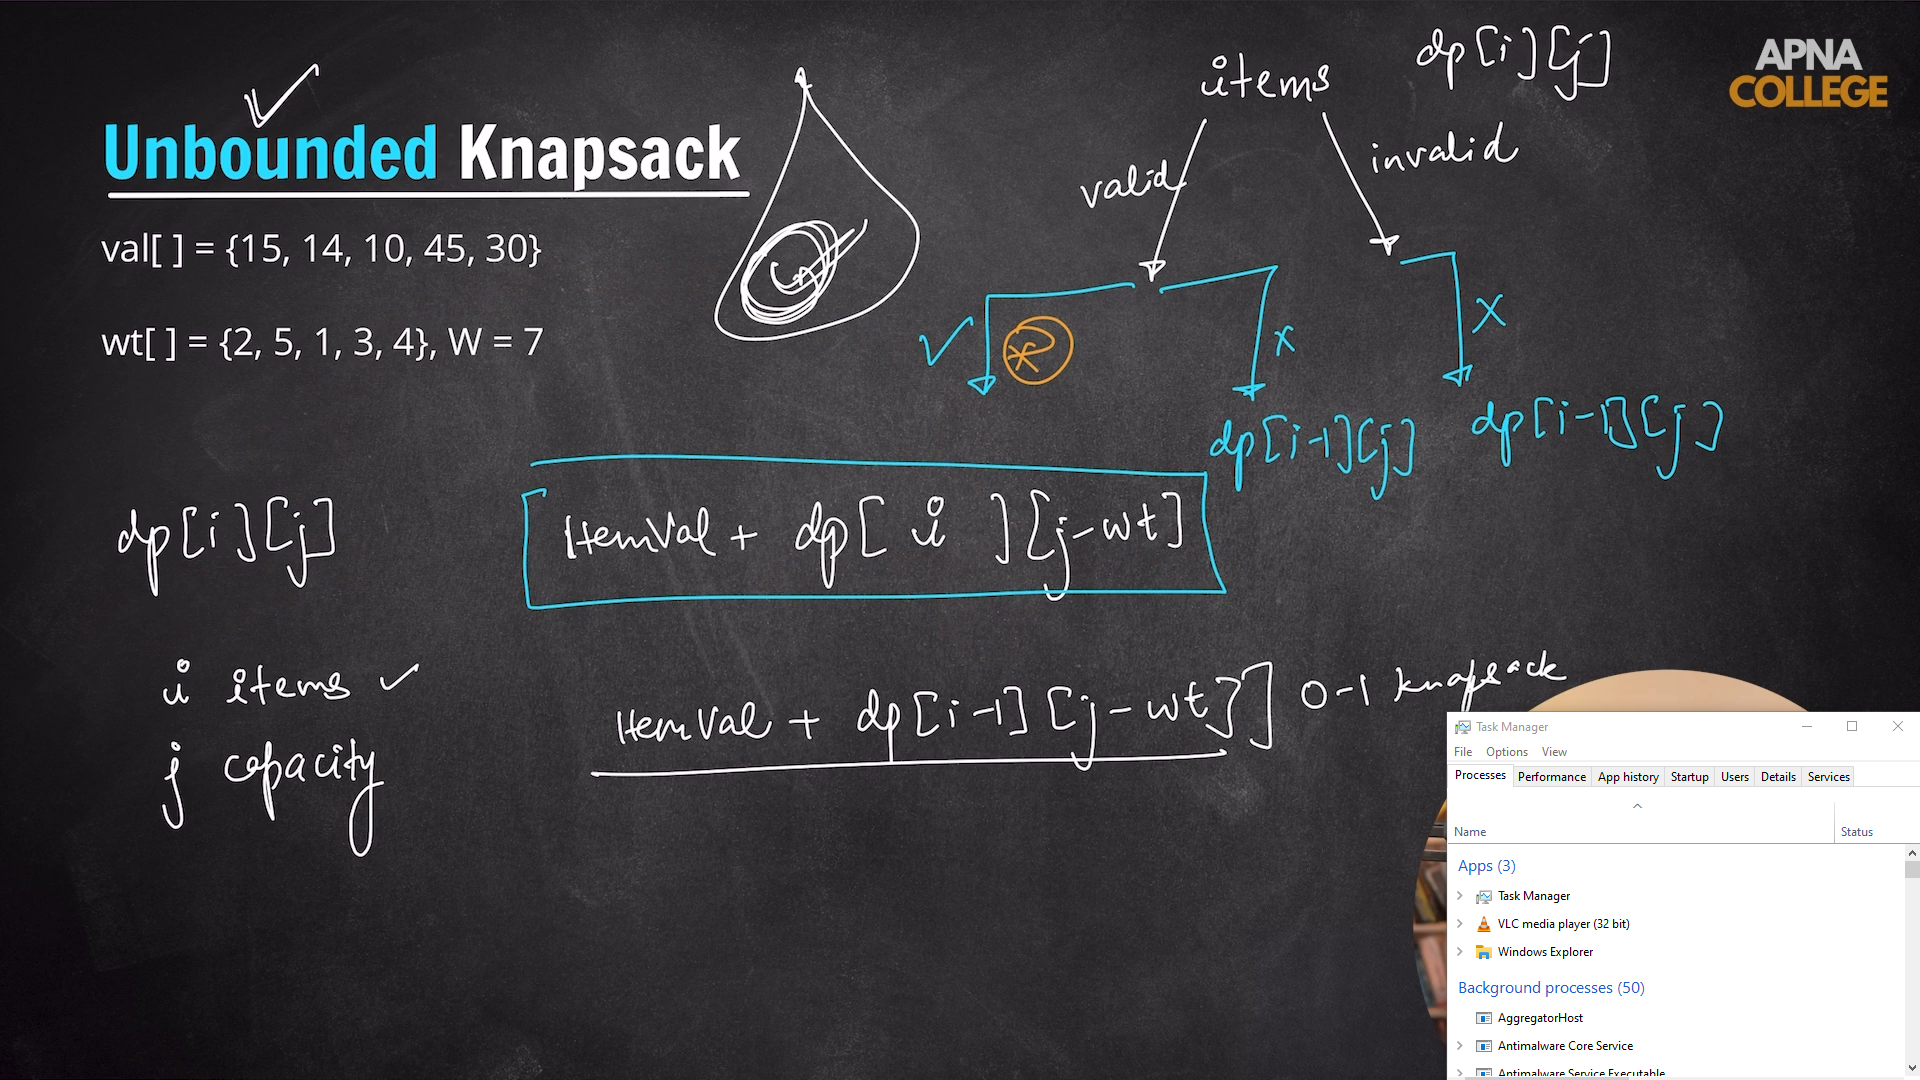 APNA
COLLEGE
Unbounded Knapsack
val[ ] = {15, 14, 10, 45, 30}
wt[ ] = {2, 5, 1, 3, 4}, W = 7
items
dp[i][j]
valid
invalid
x
x
dp[i-1][j]
dp[i-1][j]
dp[i][j]
ItemVal + dp[ i ][j-wt]
i items
j capacity
ItemVal + dp[i-1][j-wt]
0-1 knapsack
Task Manager
File Options View
Processes Performance App history Startup Users Details Services
Name Status
Apps (3)
Task Manager
VLC media player (32 bit)
Windows Explorer
Background processes (50)
AggregatorHost
Antimalware Core Service
Antimalware Service Executable